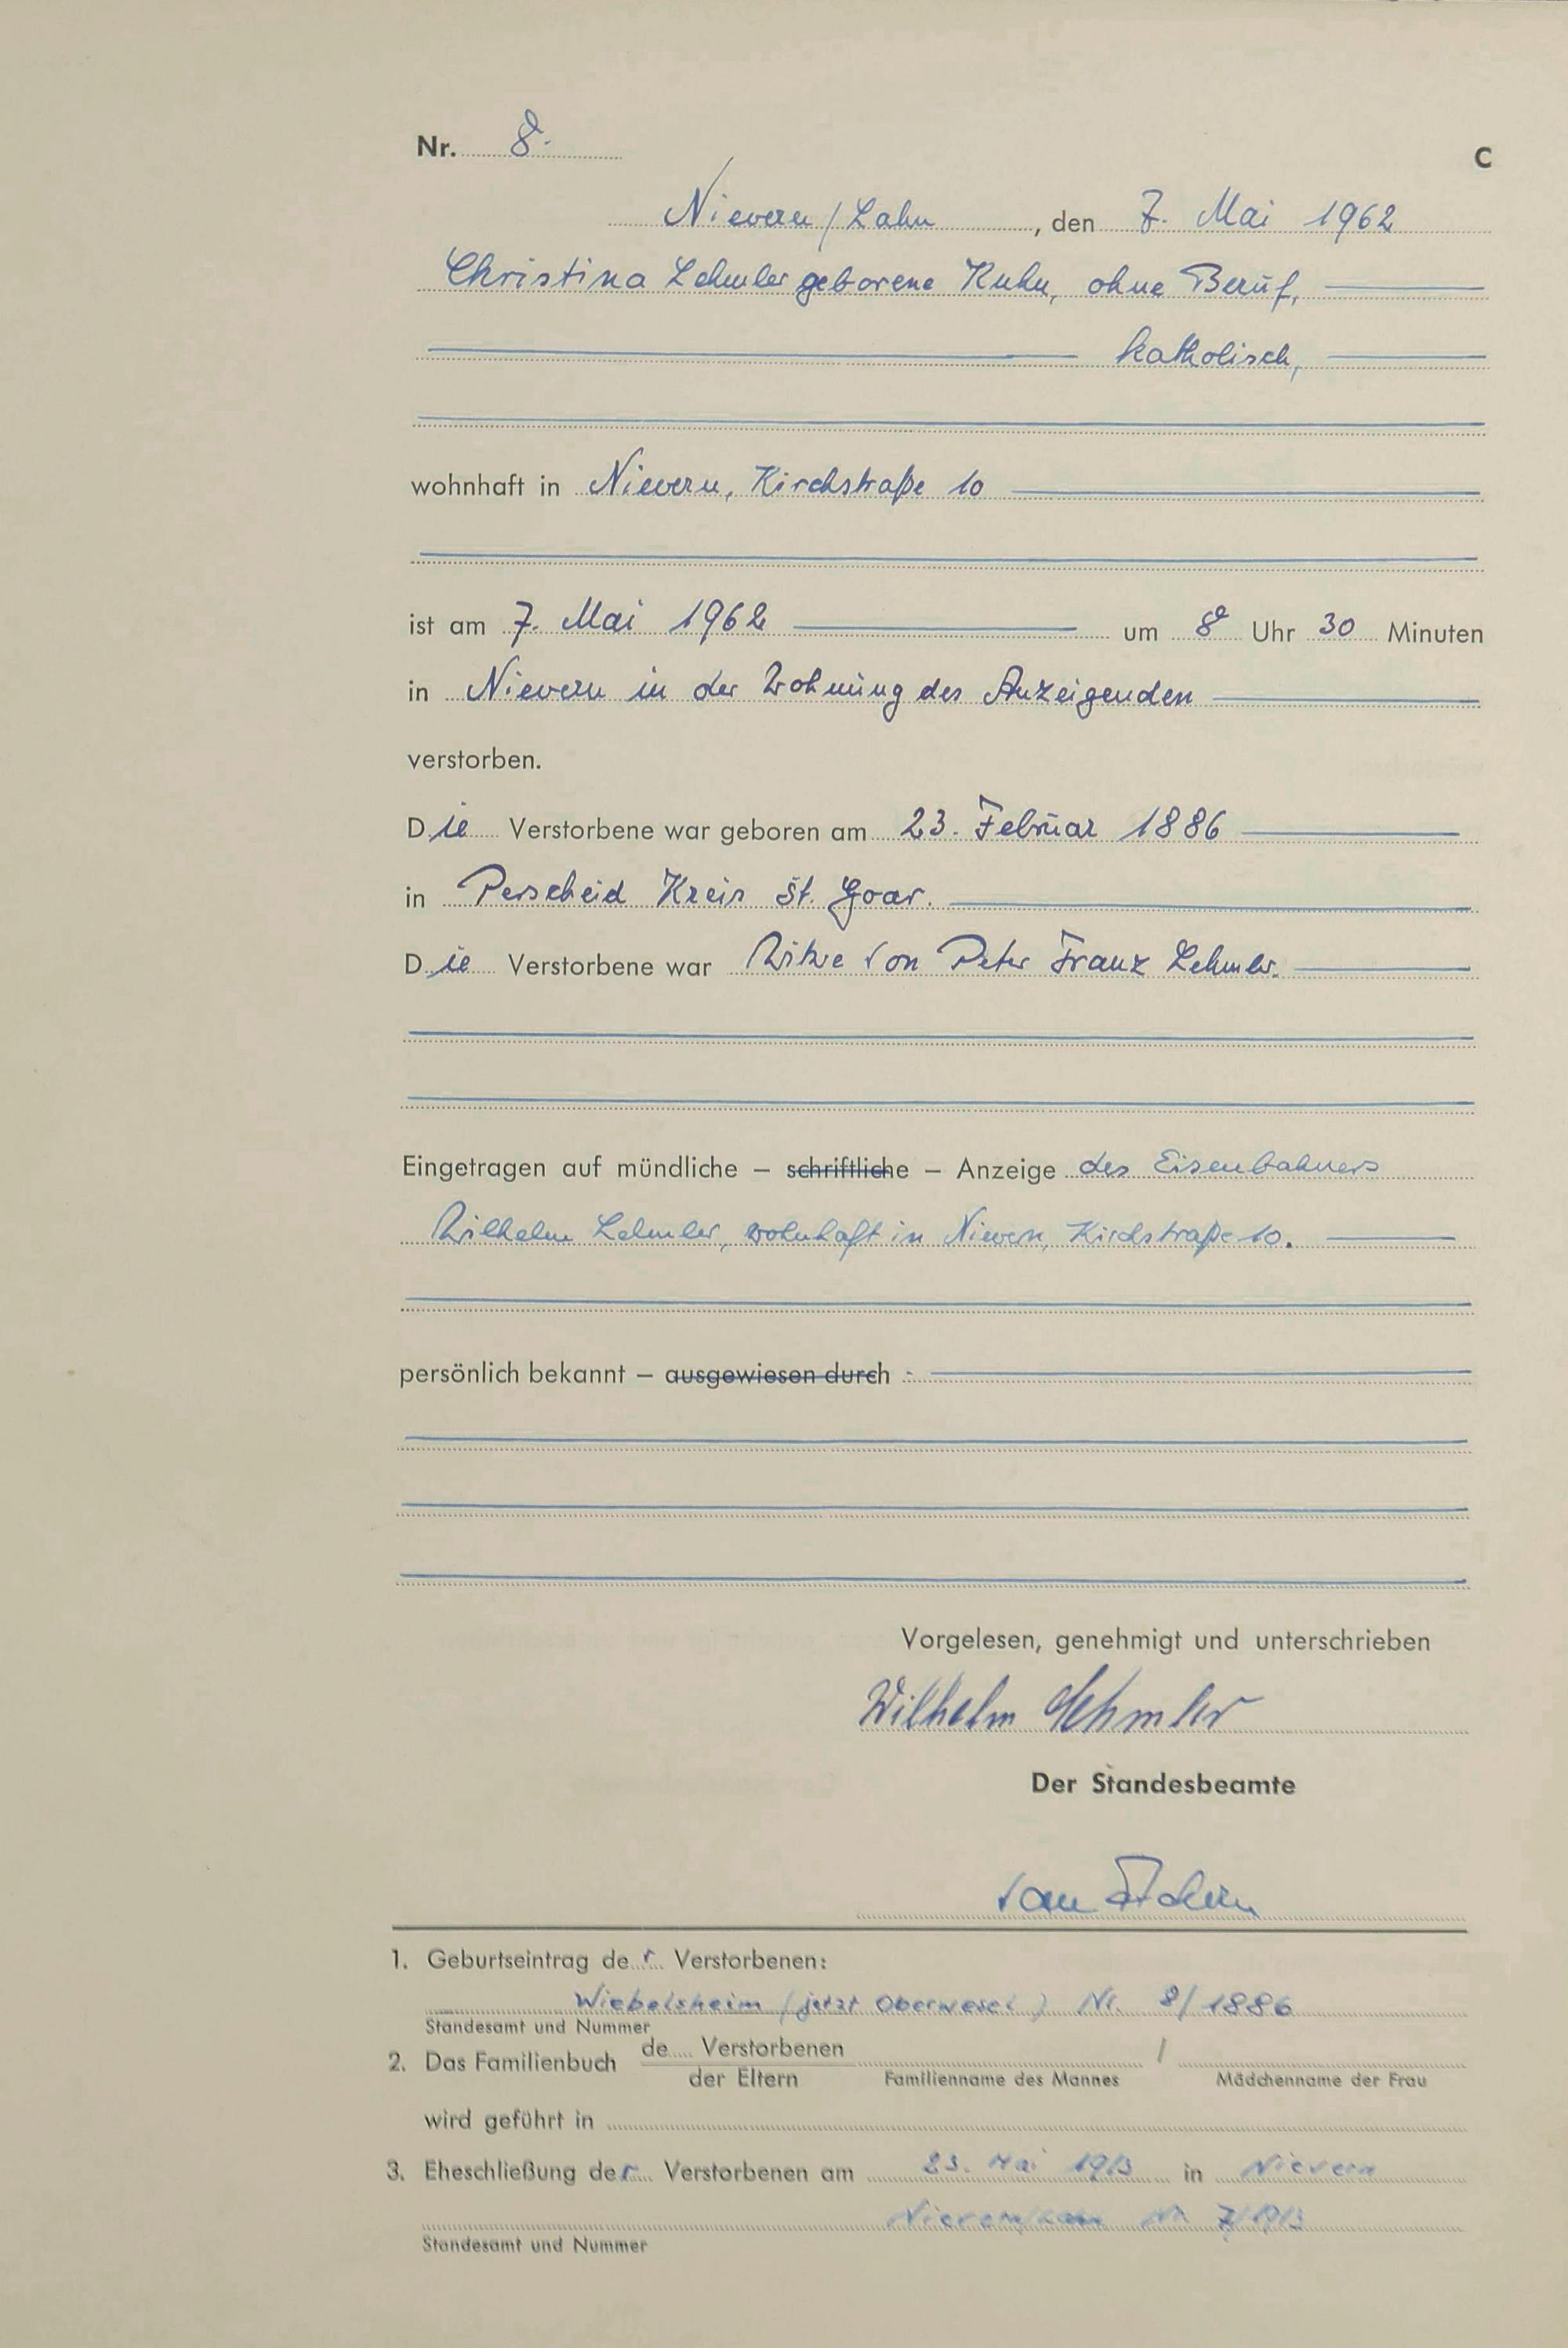 Nr. 8.
C
Nievern/Lahn, den 7. Mai 1962
Christina Lehmler geborene Kuhn, ohne Beruf,
katholisch,
wohnhaft in Nievern, Kirchstraße 10
ist am 7. Mai 1962 um 8 Uhr 30 Minuten
in Nievern in der Wohnung des Anzeigenden
verstorben.
Die Verstorbene war geboren am 23. Februar 1886
in Perscheid Kreis St. Goar.
Die Verstorbene war Witwe von Peter Franz Lehmler.
Eingetragen auf mündliche – schriftliche – Anzeige des Eisenbahners
Wilhelm Lehmler, wohnhaft in Nievern, Kirchstraße 10.
persönlich bekannt – ausgewiesen durch
Vorgelesen, genehmigt und unterschrieben
Wilhelm Lehmler
Der Standesbeamte
1. Geburtseintrag der Verstorbenen:
Wiebelsheim (jetzt Oberwesel) Nr. 8/1886
Standesamt und Nummer
2. Das Familienbuch de.... Verstorbenen /
der Eltern Familienname des Mannes Mädchenname der Frau
wird geführt in
3. Eheschließung der Verstorbenen am 23. Mai 1913 in Nievern
Nievern/Lahn Nr. 7/1913
Standesamt und Nummer